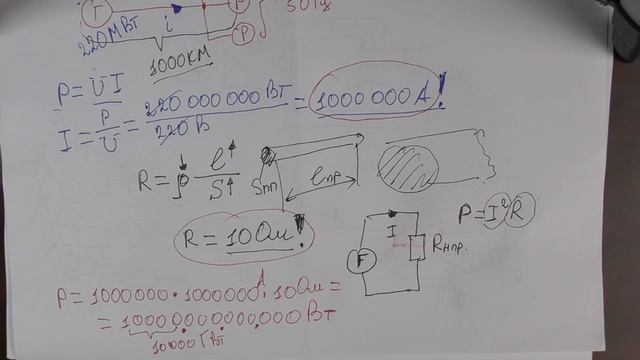 Г
50 Гц
220 МВт
i
Р
1000 КМ
P = U I
I = P/U = 220 000 000 Вт / 220 В = 1000 000 А!
R = ρ l/S
Sпп
lпр
R = 10 Ом!
P = I²R
I
Г
Rнпр.
P = 1000000 · 1000000 А · 10 Ом =
= 10000000000000 Вт
10000 ГВт